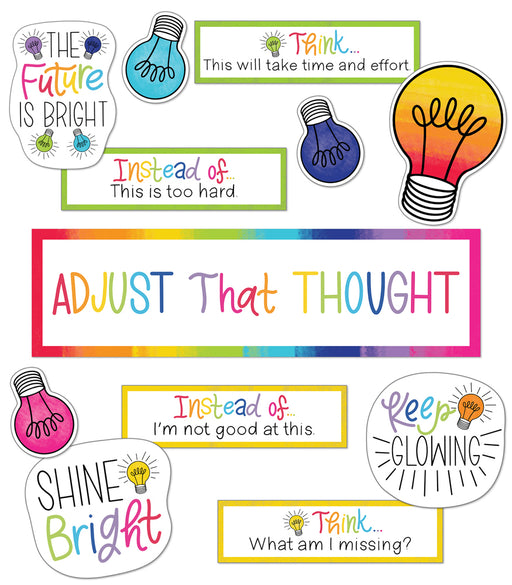 THE
Future
IS BRIGHT
Think...
This will take time and effort.
Instead of...
This is too hard.
ADJUST That THOUGHT
Instead of...
I'm not good at this.
Keep
GLOWING
SHINE
Bright
Think...
What am I missing?